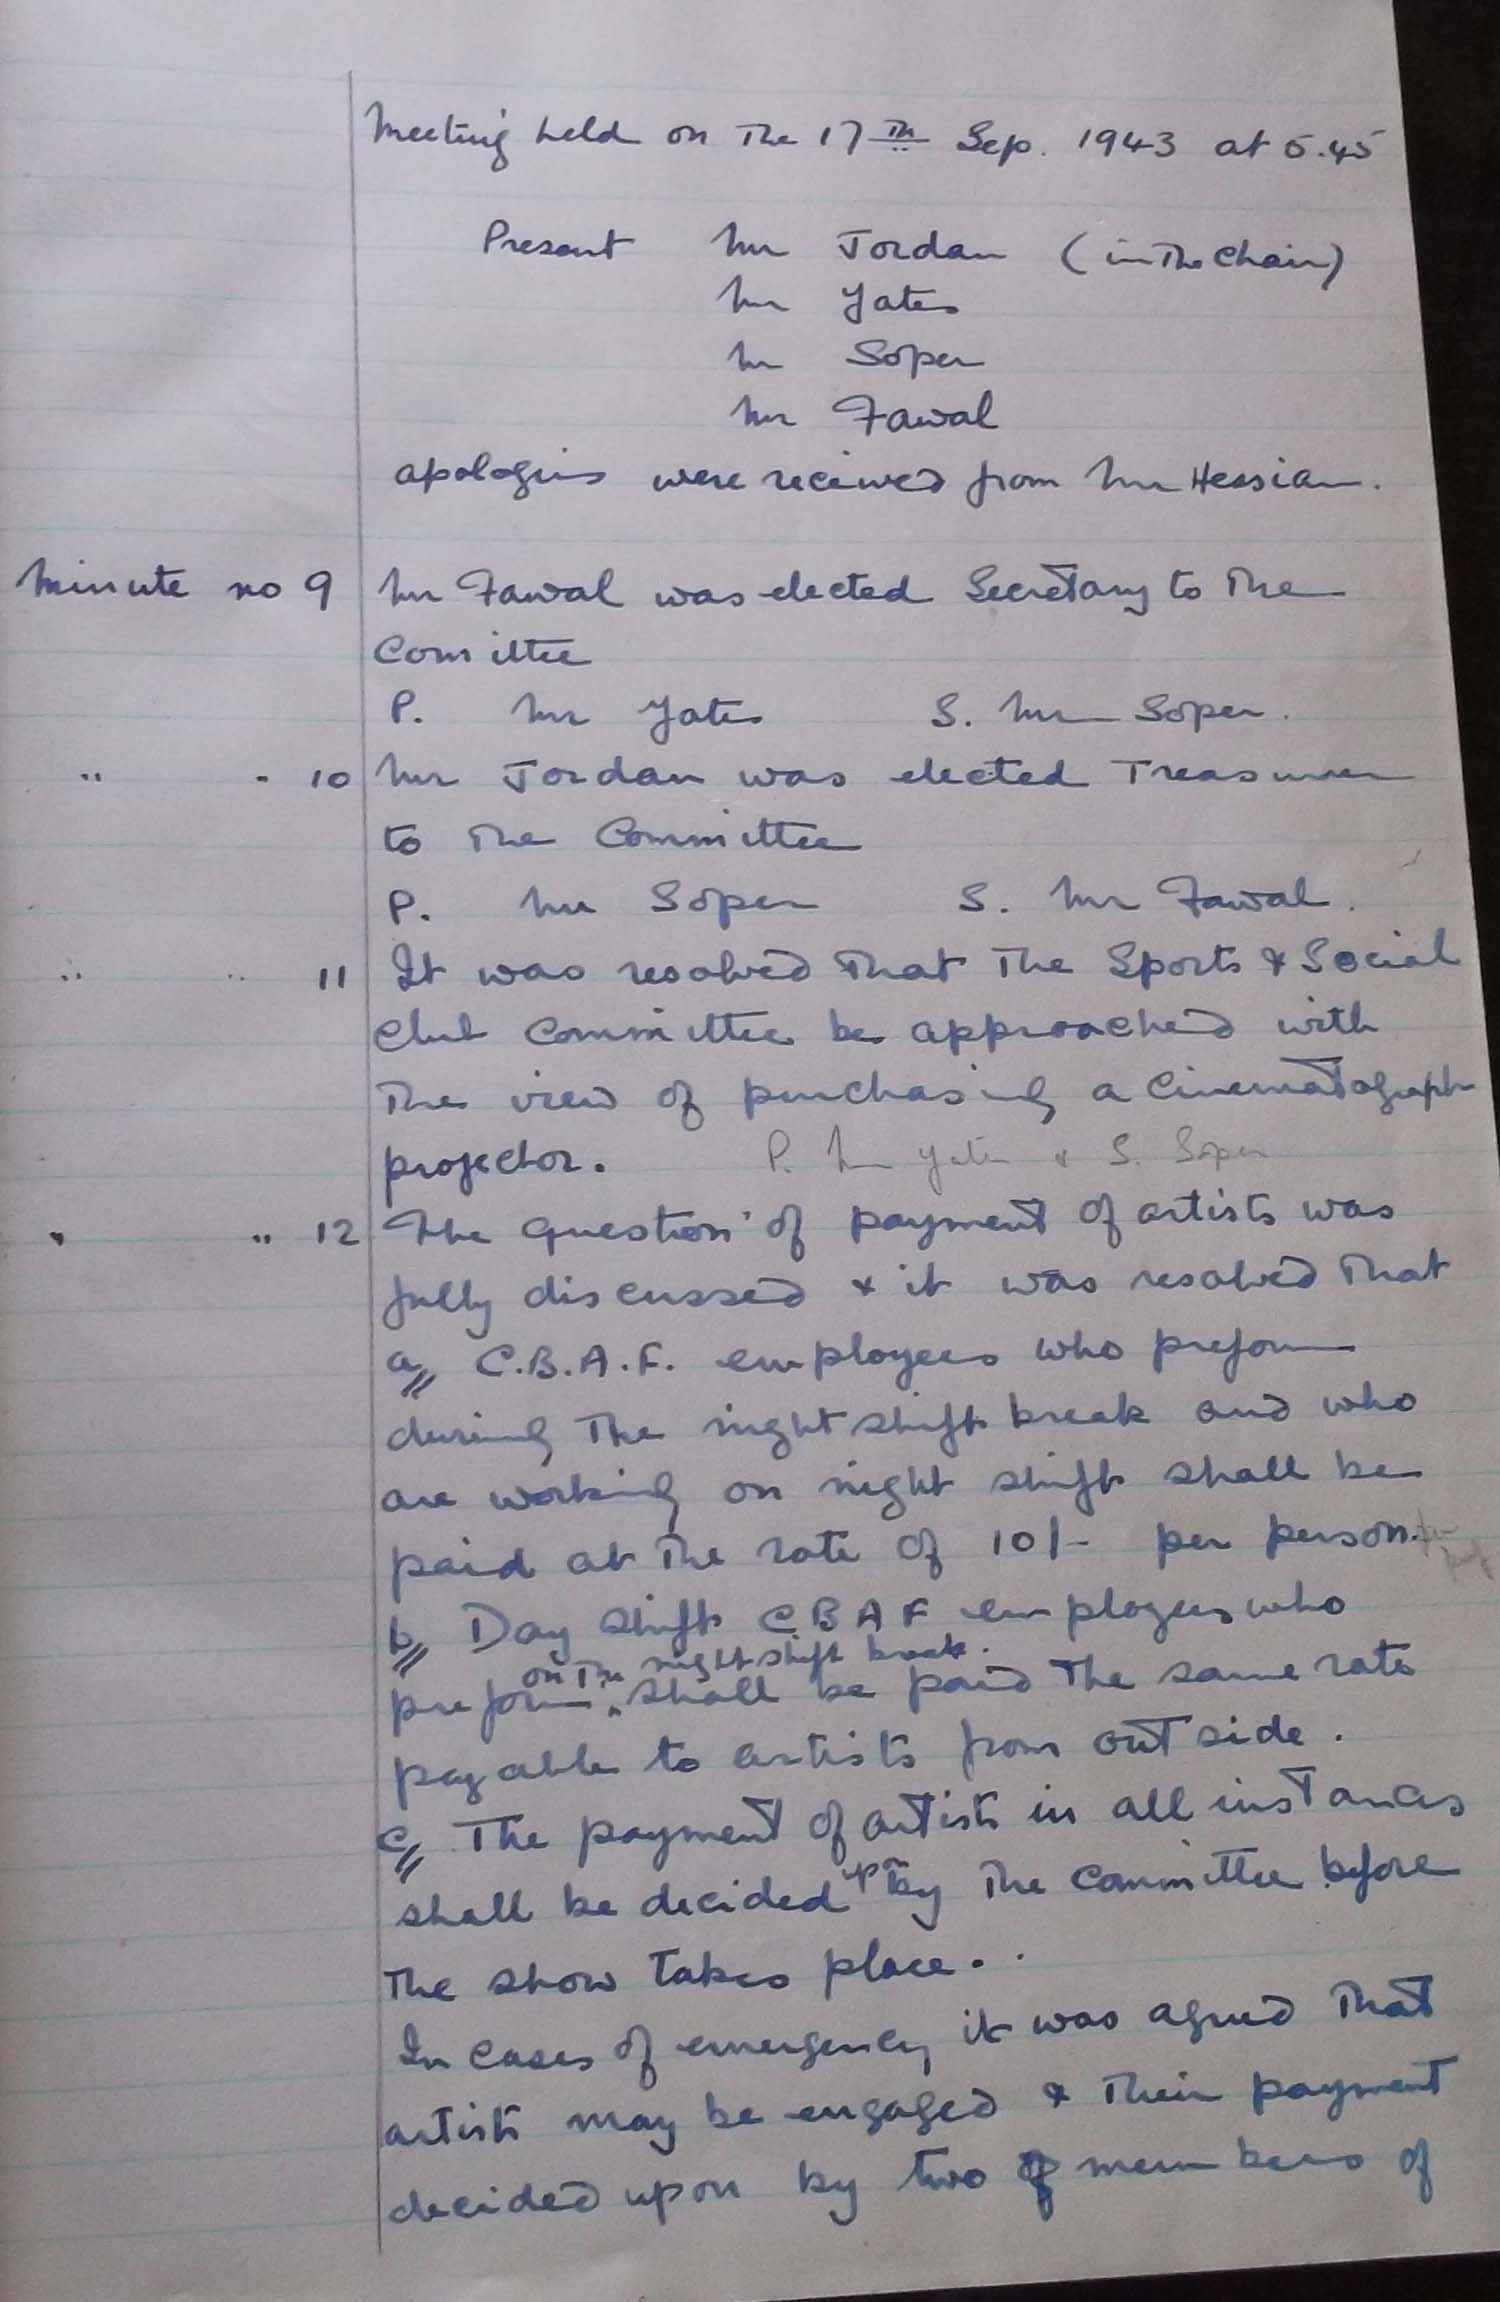 Meeting held on the 17th Sep. 1943 at 5.45
Present Mr Jordan (in the Chair)
Mr Yates
Mr Soper
Mr Fawal
apologies were received from Mr Hessian.
Minute no 9 Mr Fawal was elected Secretary to the
Comittee
P. Mr Yates S. Mr Soper.
" " 10 Mr Jordan was elected Treasurer
to the Committee
P. Mr Soper S. Mr Fawal.
" " 11 It was resolved that the Sports & Social
Club Committee be approached with
the view of purchasing a Cinematograph
projector. P. Mr Yates & S. Soper
" " 12 The question of payment of artists was
fully discussed & it was resolved that
a// C.B.A.F. employees who preform
during the night shift break and who
are working on night shift shall be
paid at the rate of 10/- per person.
b// Day shift C.B.A.F employees who
on the night shift break.
preform shall be paid the same rate
payable to artists from outside.
c// The payment of artists in all instances
shall be decided upon by the Committee before
the show takes place.
In cases of emergency it was agreed that
artists may be engaged & their payment
decided upon by two members of